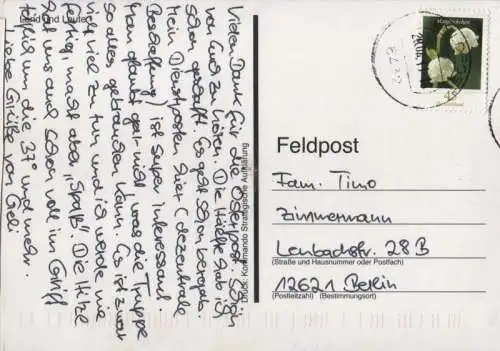 Land und Leute
Vielen Dank für die Osterpost. Schön
von Euch zu hören. Die Hälfte hab ich
schon geschafft. Es geht schon bergab.
Mein Dienstposten hier (dezentrale
Beschaffung) ist super interessant.
Man glaubt gar nicht was die Truppe
so alles gebrauchen kann. Es ist zwar
viel viel zu tun und ich werde nie
fertig, macht aber "Spaß". Die Hitze
hat uns auch schon voll im Griff
täglich um die 37° und mehr
Liebe Grüße von Geli
Druck: Kommando Strategische Aufklärung
45
Deutschland
Feldpost
Fam. Timo
Zimmermann
Lenbachstr. 28B
(Straße und Hausnummer oder Postfach)
12621 Berlin
(Postleitzahl) (Bestimmungsort)